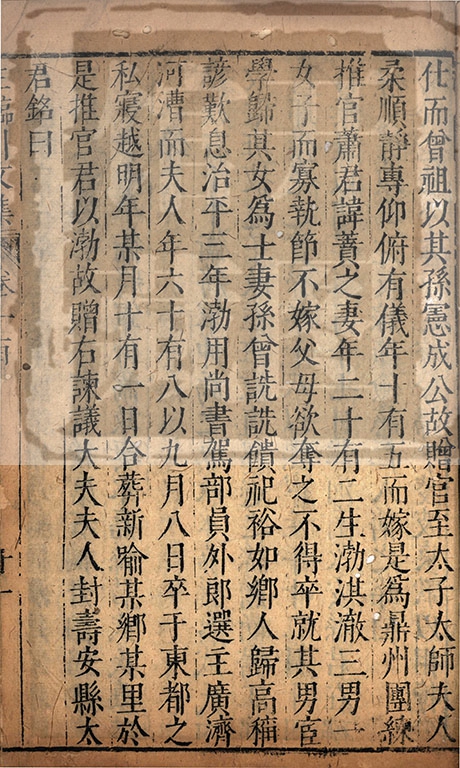 仕而曾祖以其孫憲成公故贈官至太子太師夫人
柔順靜專仰俯有儀年十有五而嫁是爲鼎州團練
推官蕭君諱蕡之妻年二十有二生渤淇澈三男一
女子而寡執節不嫁父母欲奪之不得卒就其男宦
學歸其女爲士妻孫曾詵詵饋祀裕如鄉人歸高稱
諺歎息治平三年渤用尚書駕部員外郎選主廣濟
河漕而夫人年六十有八以九月八日卒于東都之
私寢越明年某月十有一日合葬新喻某鄉某里於
是推官君以渤故贈右諫議大夫夫人封壽安縣太
君銘曰
王臨川文集 卷一百